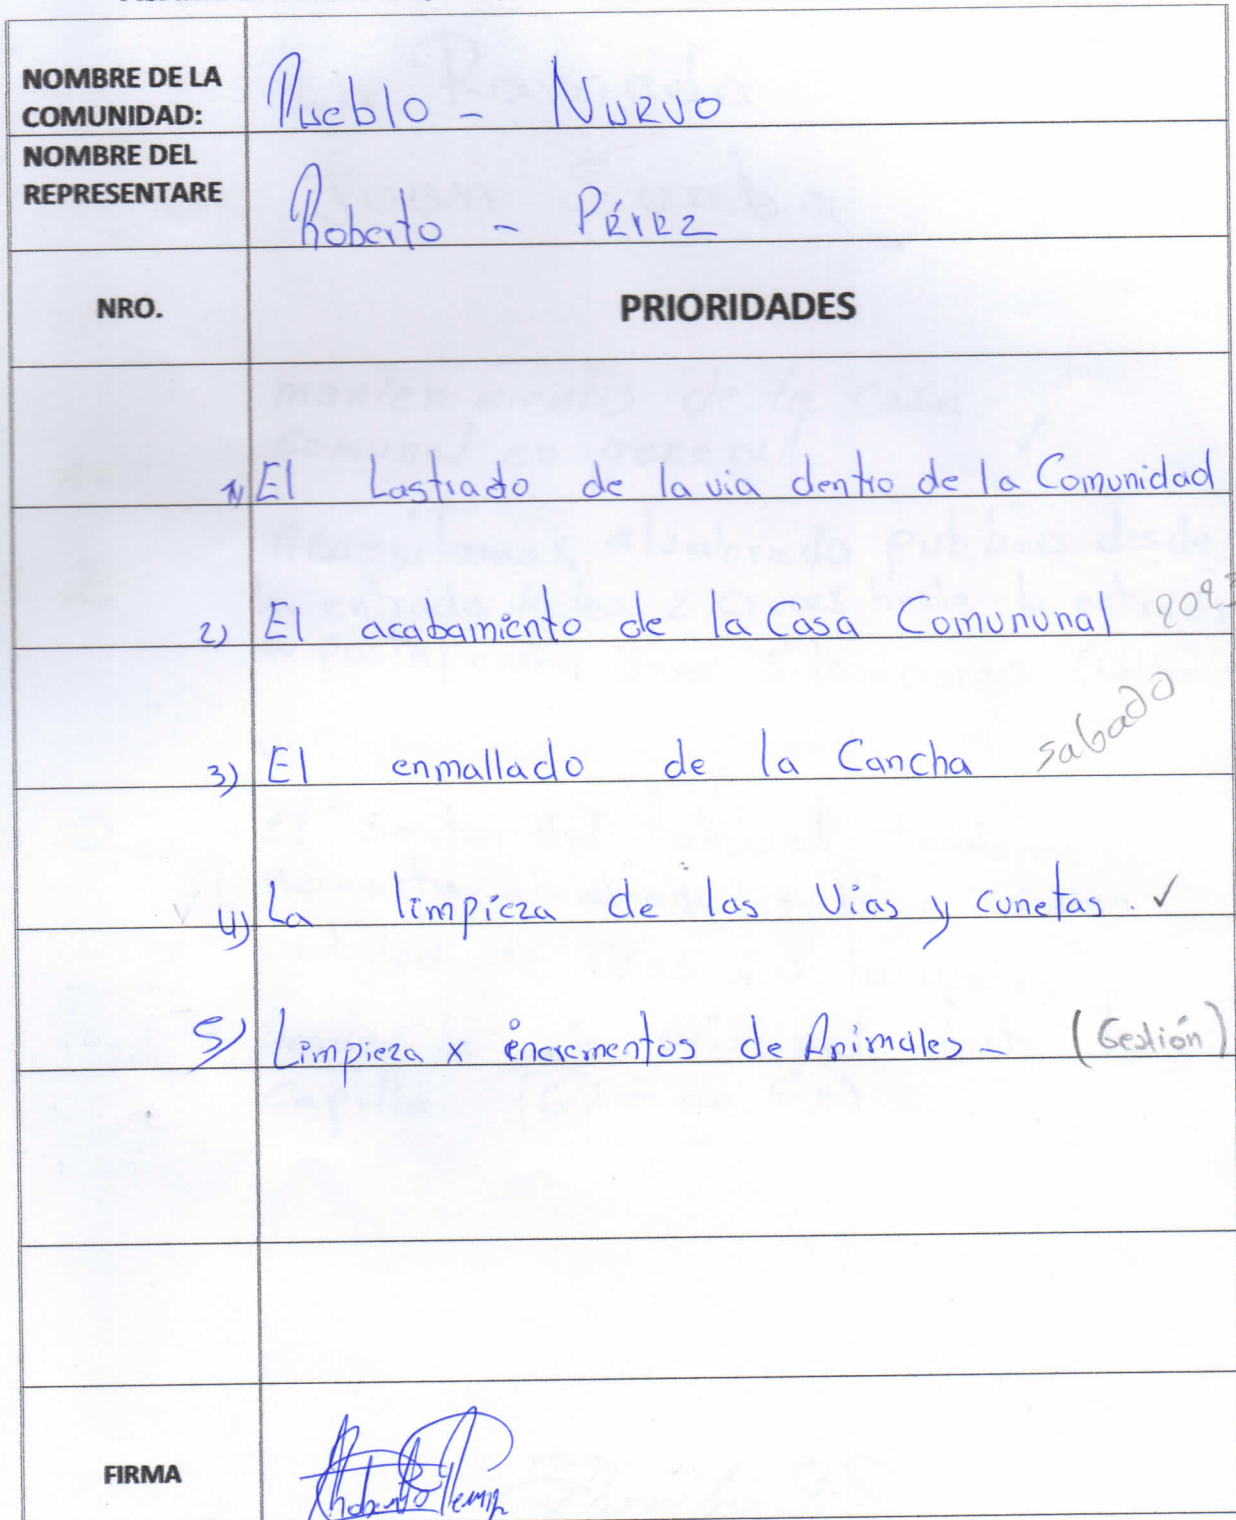 NOMBRE DE LA
COMUNIDAD:
Pueblo - NUEVO
NOMBRE DEL
REPRESENTARE
Roberto - PÉREZ
NRO.
PRIORIDADES
1) El Lastrado de la via dentro de la Comunidad
2) El acabamiento de la Casa Comununal
3) El enmallado de la Cancha sabado
4) La limpieza de las Vias y cunetas. ✓
5) Limpieza x encrementos de Animales - (Gestión)
FIRMA